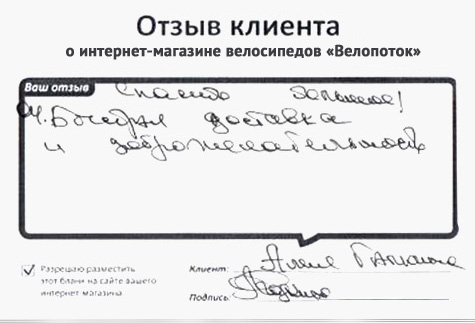 Отзыв клиента
о интернет-магазине велосипедов «Велопоток»
Ваш отзыв
Спасибо
Быстрая доставка
и доброжелательность
Разрешаю разместить
этот бланк на сайте вашего
интернет магазина
Клиент:
Подпись: